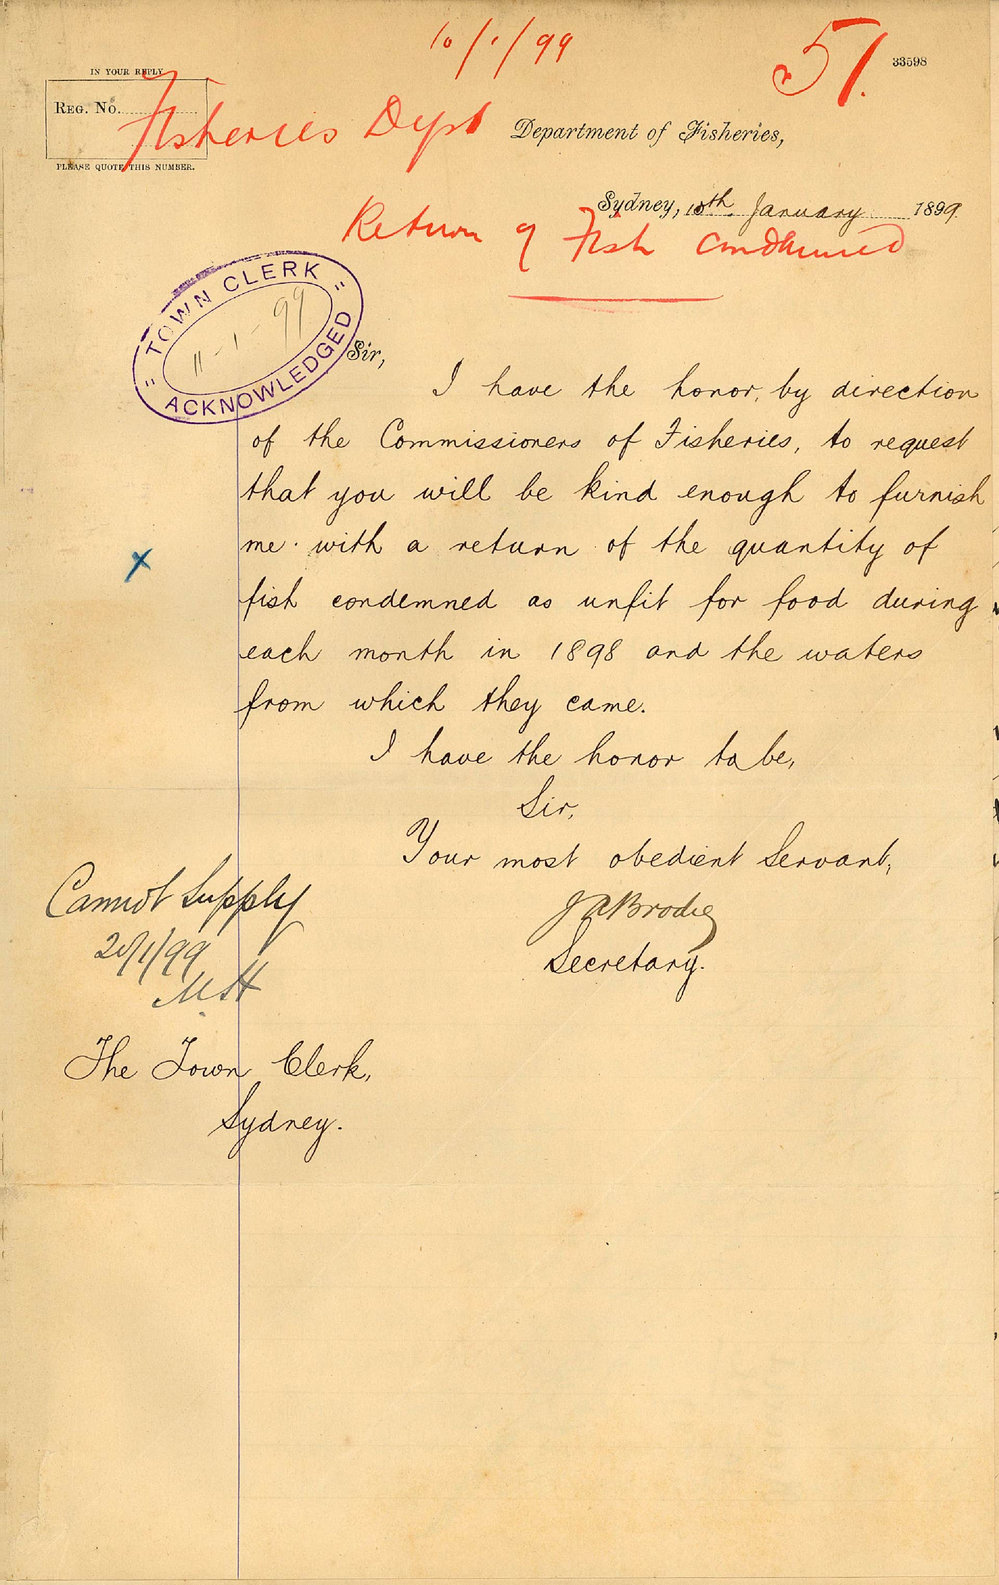 10/1/99
51.
33598
IN YOUR REPLY
REG. No.
PLEASE QUOTE THIS NUMBER.
Fisheries Dept
Department of Fisheries,
Sydney, 10th January 1899
Return of Fish Condemned
TOWN CLERK
11-1-99
ACKNOWLEDGED
Sir,
I have the honor, by direction
of the Commissioners of Fisheries, to request
that you will be kind enough to furnish
me with a return of the quantity of
fish condemned as unfit for food during
each month in 1898 and the waters
from which they came.
I have the honor to be,
Sir,
Your most obedient Servant,
Brodie
Secretary.
Cannot Supply
/1/99
The Town Clerk,
Sydney.